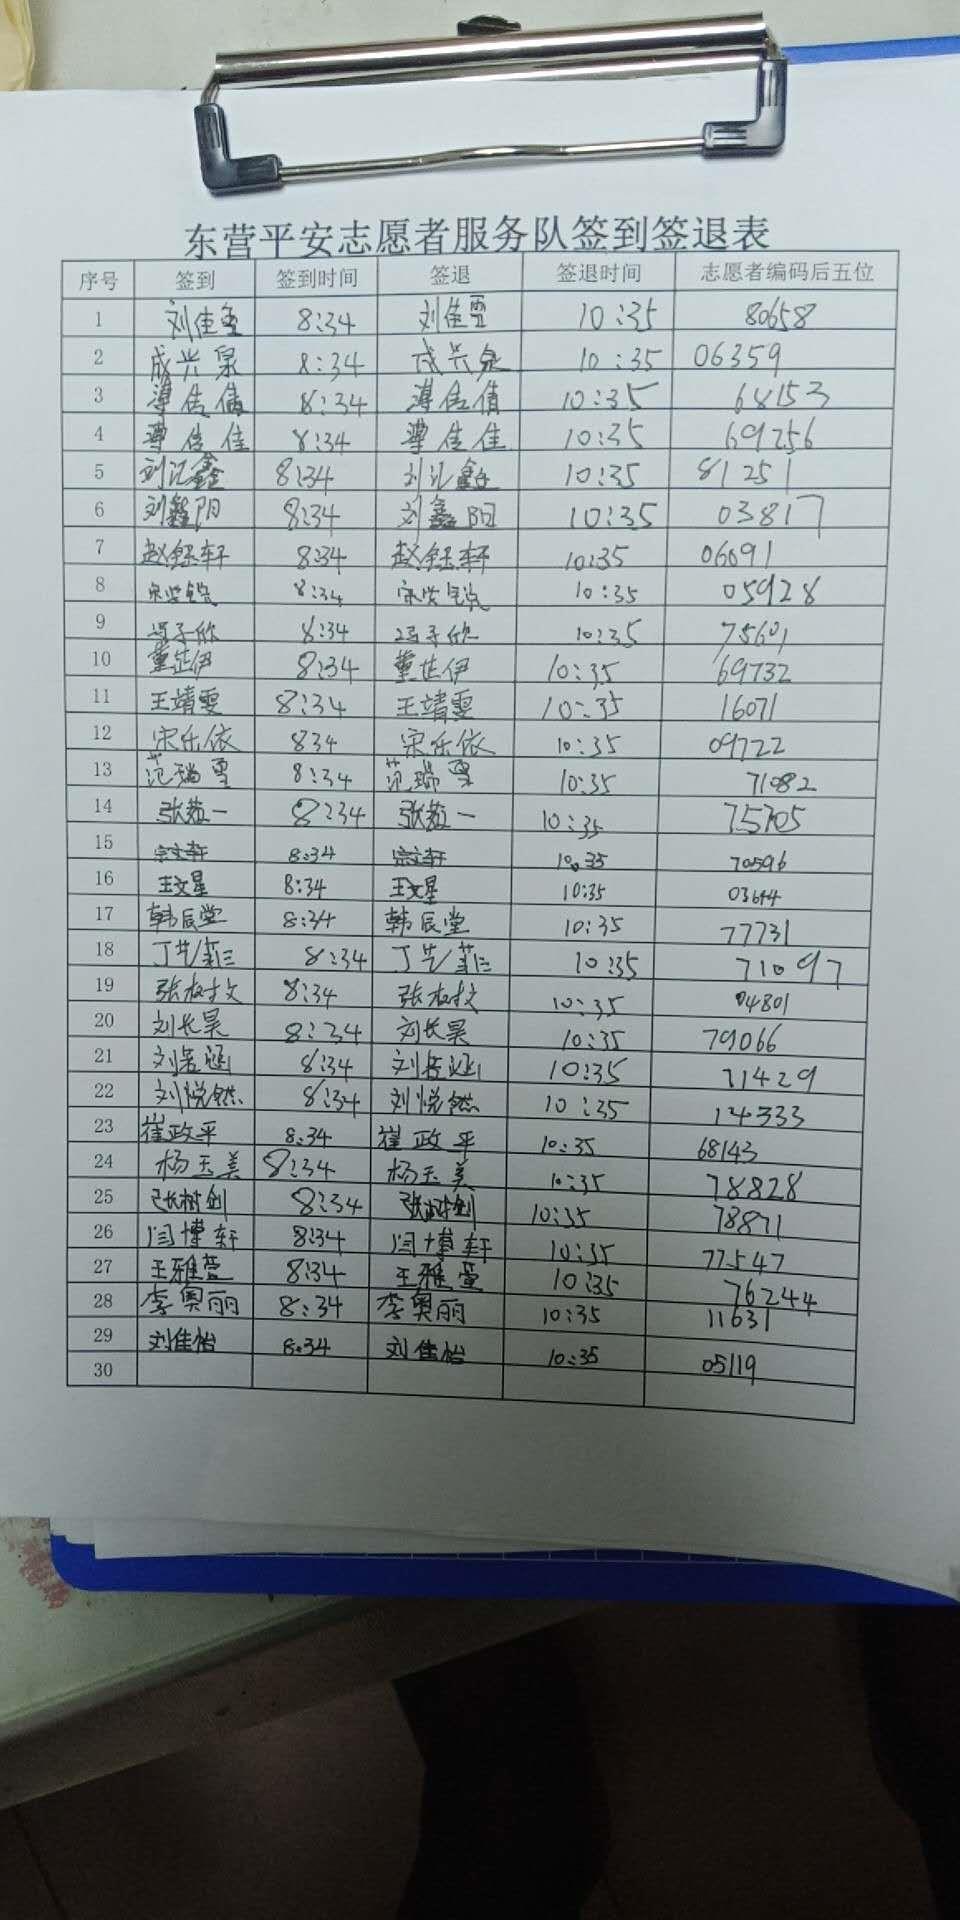 东营平安志愿者服务队签到签退表
序号 签到 签到时间 签退 签退时间 志愿者编码后五位
1 刘佳雪 8:34 刘佳雪 10:35 80658
2 成兴泉 8:34 成兴泉 10:35 06359
3 8:34 10:35 68153
4 8:34 10:35 69256
5 刘汇鑫 8:34 刘汇鑫 10:35 81251
6 刘鑫阳 8:34 刘鑫阳 10:35 03817
7 赵钰轩 8:34 赵钰轩 10:35 06091
8 8:34 10:35 05928
9 冯子欣 8:34 冯子欣 10:35 75601
10 董芷伊 8:34 董芷伊 10:35 69732
11 王靖雯 8:34 王靖雯 10:35 16071
12 宋乐依 834 宋乐依 10:35 09722
13 范瑞雪 8:34 范瑞雪 10:35 71082
14 8:34 10:35 75705
15 宗文轩 8:34 宗文轩 10:35 70596
16 王文星 8:34 王文星 10:35 03644
17 韩辰堂 8:34 韩辰堂 10:35 77731
18 丁艺菲 8:34 丁艺菲 10:35 71097
19 8:34 10:35 04801
20 刘长昊 8:34 刘长昊 10:35 79066
21 刘若涵 8:34 刘若涵 10:35 71429
22 刘悦然 8:34 刘悦然 10:35 14333
23 崔政平 8:34 崔政平 10:35 68143
24 杨玉美 8:34 杨玉美 10:35 78828
25 张树剑 8:34 张树剑 10:35 78871
26 闫博轩 8:34 闫博轩 10:35 77547
27 王雅萱 8:34 王雅萱 10:35 76244
28 李奥丽 8:34 李奥丽 10:35 11631
29 刘佳怡 8:34 刘佳怡 10:35 05119
30